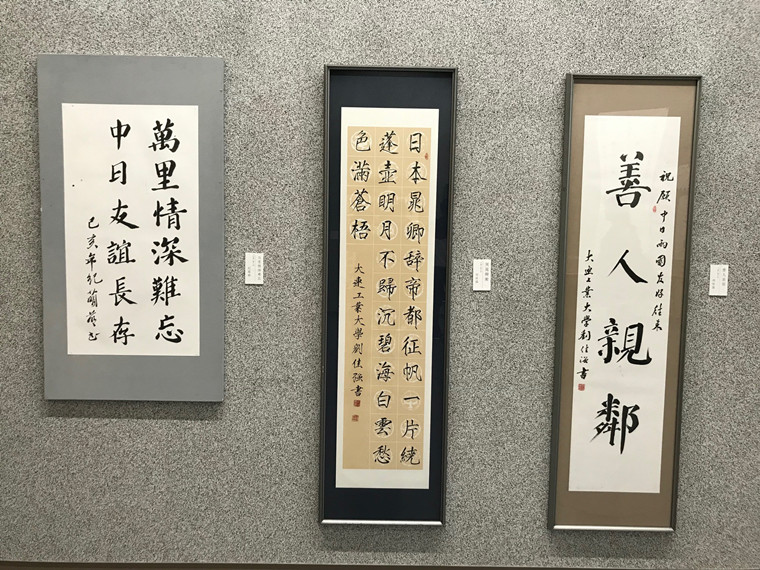 萬里情深難忘
中日友誼長存
己亥年紀萌書
日本晁卿辞帝都征帆一片繞
蓬壺明月不歸沉碧海白雲愁
色滿蒼梧
大連工業大學劉佳强書
祝願中日兩國友好往来
善人親鄰
大連工業大學劉佳書